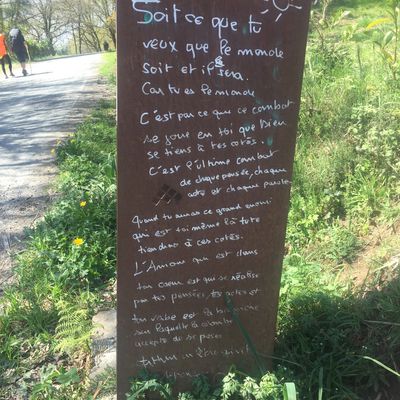 Soit ce que tu
veux que le monde
soit et il sera.
Car tu es le monde
C'est parce que ce combat
se joue en toi que Dieu
se tiens à tes côtés.
C'est l'ultime combat
de chaque pensée, chaque
acte et chaque parole.
Quand tu auras ce grand ennemi
qui est toi même là tu te
tiendra à ces côtés.
L'Amour qui est dans
ton coeur est qui se réalise
par tes pensées, tes actes et
ton verbe est la
sur laquelle la colombe
accepte de se poser